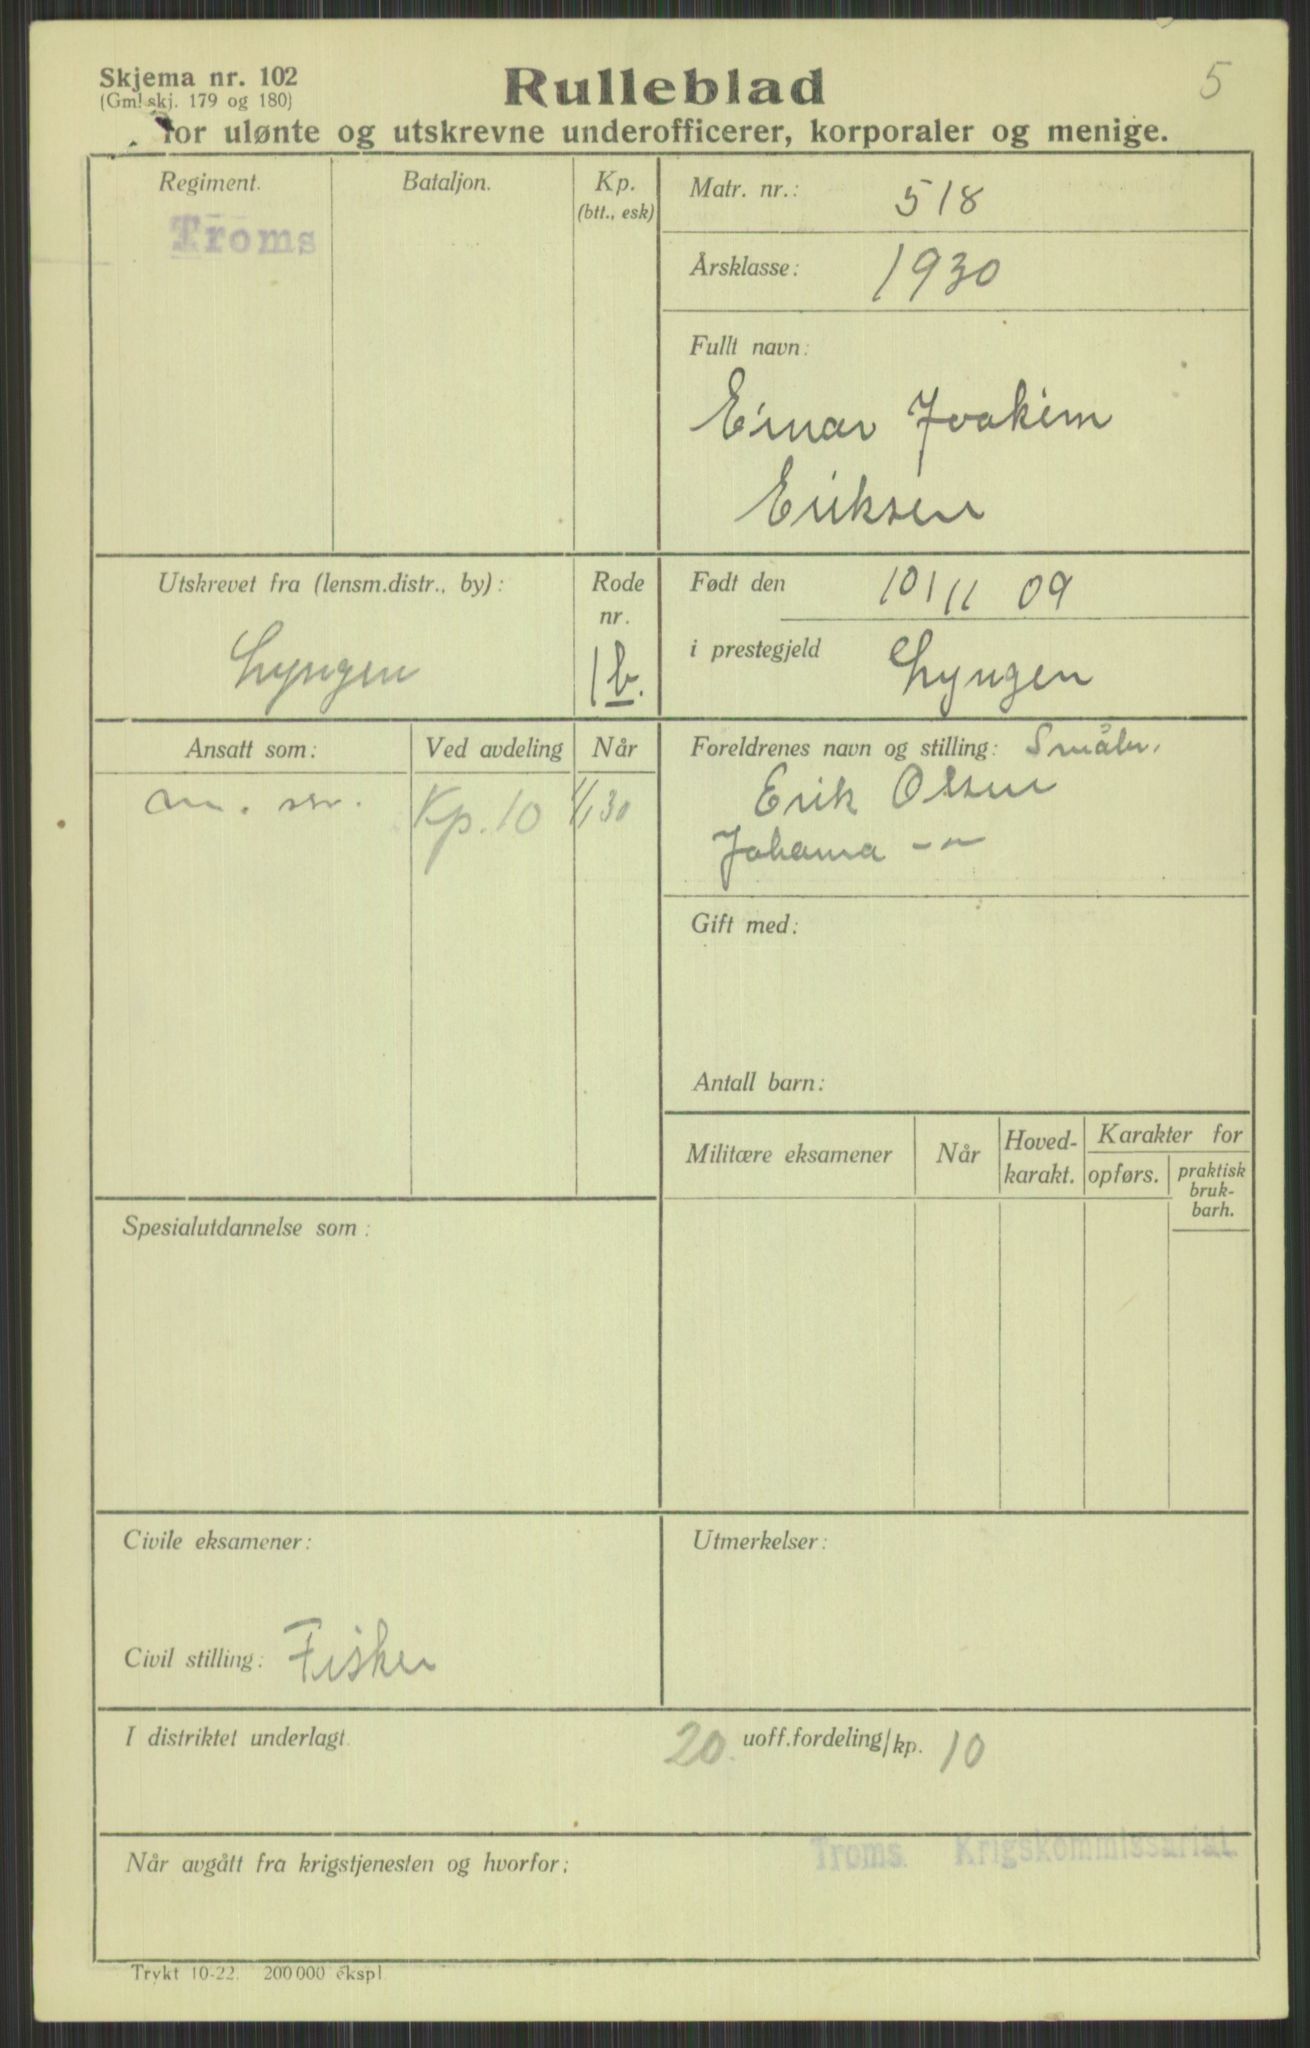 5
Skjema nr. 102
(Gml skj. 179 og 180)
Rulleblad
for ulønte og utskrevne underofficerer, korporaler og menige.
Regiment.
Troms
Bataljon.
Kp.
(btt., esk)
Matr. nr.: 518
Årsklasse: 1930
Fullt navn:
Einar Joakim
Eriksen
Utskrevet fra (lensm.distr., by):
Lyngen
Rode
nr.
1 b.
Født den 10/11 09
i prestegjeld Lyngen
Ansatt som:
Ved avdeling
Når
Kp. 10
1/1 30
Foreldrenes navn og stilling: Småbr.
Erik Olsen
Johanna -"-
Gift med:
Antall barn:
Militære eksamener
Når
Hoved-
karakt.
Karakter for
opførs.
praktisk
bruk-
barh.
Spesialutdannelse som:
Civile eksamener:
Civil stilling: Fisker
Utmerkelser:
I distriktet underlagt 20. uoff.fordeling/kp. 10
Når avgått fra krigstjenesten og hvorfor:
Troms. Krigskommissariat.
Trykt 10-22. 200 000 ekspl.